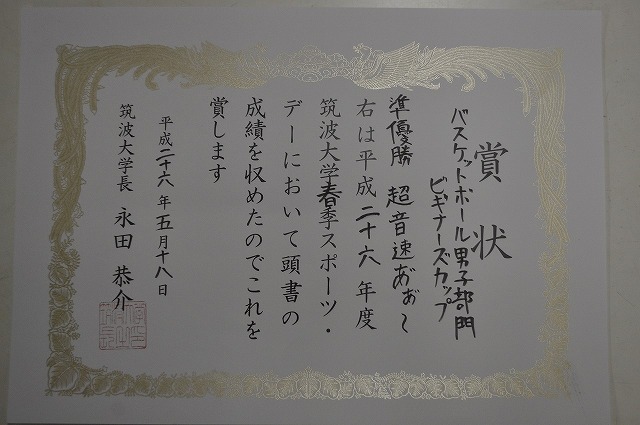 賞状
バスケットボール男子部門
ビギナーズカップ
準優勝 超音速あ゛ぉ゛〜
右は平成二十六年度
筑波大学春季スポーツ・
デーにおいて頭書の
成績を収めたのでこれを
賞します
平成二十六年五月十八日
筑波大学長 永田恭介